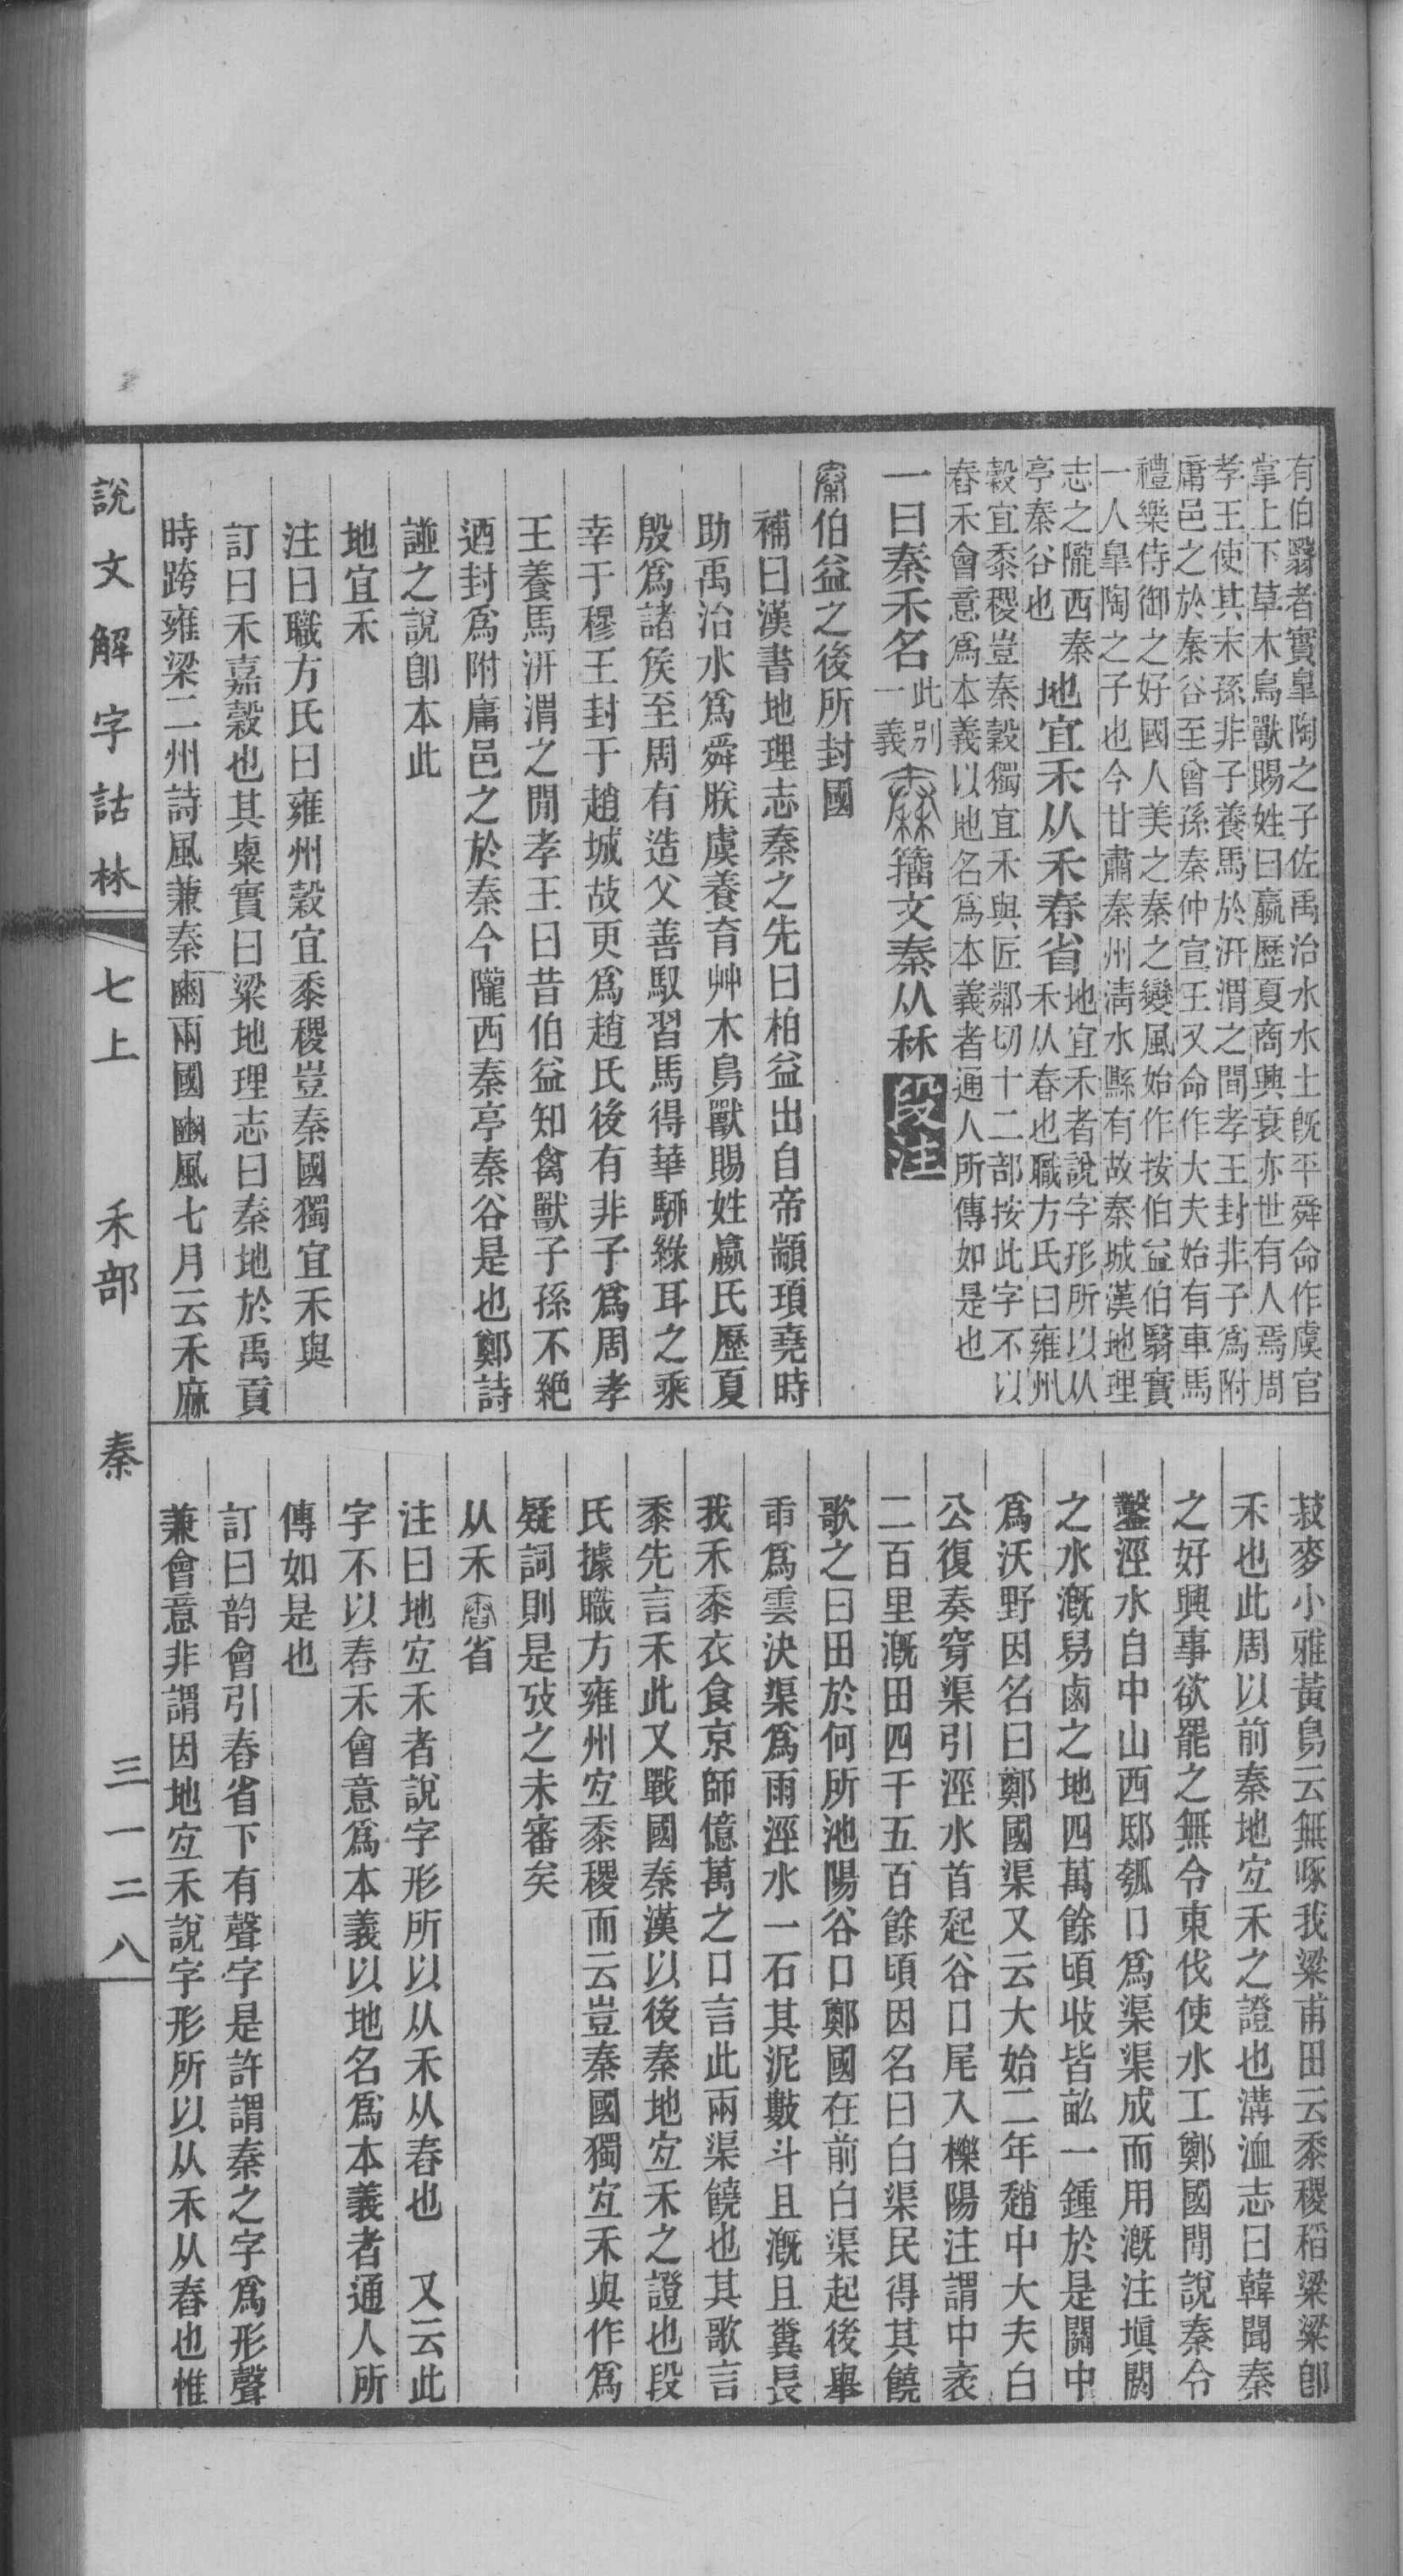 有伯翳者實皐陶之子佐禹治水水土旣平舜命作虞官
掌上下草木鳥獸賜姓曰嬴歷夏商興衰亦世有人焉周
孝王使其末孫非子養馬於汧渭之間孝王封非子爲附
庸邑之於秦谷至曾孫秦仲宣王又命作大夫始有車馬
禮樂侍御之好國人美之秦之變風始作按伯益伯翳實
一人皐陶之子也今甘肅秦州淸水縣有故秦城漢地理
志之隴西秦
亭秦谷也
地宜禾从禾舂省
地宜禾者說字形所以从
禾从舂也職方氏曰雍州
穀宜黍稷豈秦穀獨宜禾與匠鄰切十二部按此字不以
舂禾會意爲本義以地名爲本義者通人所傳如是也
一曰秦禾名
此別
一義
籒文秦从秝 段注
伯益之後所封國
補曰漢書地理志秦之先曰柏益出自帝顓頊堯時
助禹治水爲舜朕虞養育艸木鳥獸賜姓嬴氏歷夏
殷爲諸矦至周有造父善馭習馬得華騮綠耳之乘
幸于穆王封于趙城故更爲趙氏後有非子爲周孝
王養馬汧渭之閒孝王曰昔伯益知禽獸子孫不絕
迺封爲附庸邑之於秦今隴西秦亭秦谷是也鄭詩
譜之說卽本此
地宜禾
注曰職方氏曰雍州穀宜黍稷豈秦國獨宜禾與
訂曰禾嘉穀也其稟實曰粱地理志曰秦地於禹貢
時跨雍梁二州詩風兼秦豳兩國豳風七月云禾麻
菽麥小雅黃鳥云無啄我粱甫田云黍稷稻粱粱卽
禾也此周以前秦地宐禾之證也溝洫志曰韓聞秦
之好興事欲罷之無令東伐使水工鄭國閒說秦令
鑿涇水自中山西邸瓠口爲渠渠成而用漑注塡閼
之水漑舄鹵之地四萬餘頃收皆畝一鍾於是關中
爲沃野因名曰鄭國渠又云大始二年趙中大夫白
公復奏穿渠引涇水首起谷口尾入櫟陽注謂中袤
二百里漑田四千五百餘頃因名曰白渠民得其饒
歌之曰田於何所池陽谷口鄭國在前白渠起後舉
臿爲雲決渠爲雨涇水一石其泥數斗且漑且糞長
我禾黍衣食京師億萬之口言此兩渠饒也其歌言
黍先言禾此又戰國秦漢以後秦地宐禾之證也段
氏據職方雍州宐黍稷而云豈秦國獨宐禾與作爲
疑詞則是攷之未審矣
从禾省
注曰地宐禾者說字形所以从禾从舂也　又云此
字不以舂禾會意爲本義以地名爲本義者通人所
傳如是也
訂曰韵會引舂省下有聲字是許謂秦之字爲形聲
兼會意非謂因地宐禾說字形所以从禾从舂也惟
說文解字詁林 七上 禾部 秦 三一二八